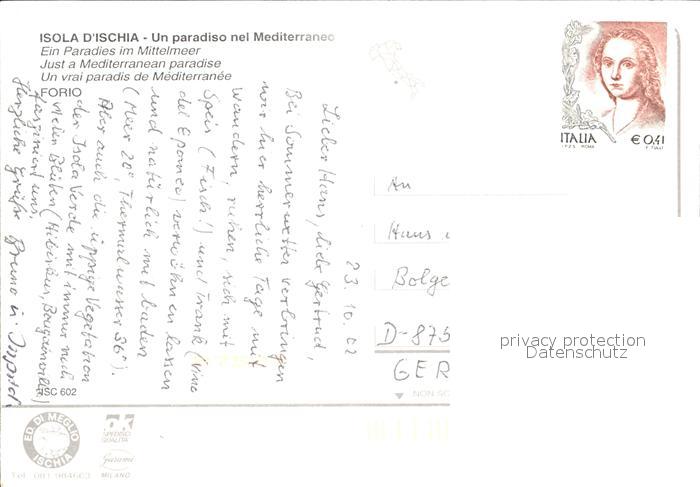 ISOLA D'ISCHIA - Un paradiso nel Mediterraneo
Ein Paradies im Mittelmeer
Just a Mediterranean paradise
Un vrai paradis de Méditerranée
FORIO
23.10.02
Lieber Hans, liebe Gertrud,
Bei Sommerwetter verbringen
wir hier herrliche Tage mit
wandern, ruhen, sich mit
Speis (Fisch!) und Trank (Vino
del Epomeo) verwöhnen lassen
und natürlich mit baden
(Meer 20°, Thermalwasser 36°).
Aber auch die üppige Vegetation
der Isola Verde mit immer noch
vielen Blüten (Hibiskus, Bougainvillea)
fasziniert uns.
Herzliche Grüße Bruno u.
ISC 602
ITALIA € 0,41
I.P.Z.S. ROMA F. TULLI
An
Hans
Bolge
D-875
GER
NON SC
privacy protection
Datenschutz
ED. DI MEGLIO
ISCHIA
Tel. 081 984663
OK
SPEDISCI
QUALITÀ
Garami
MILANO